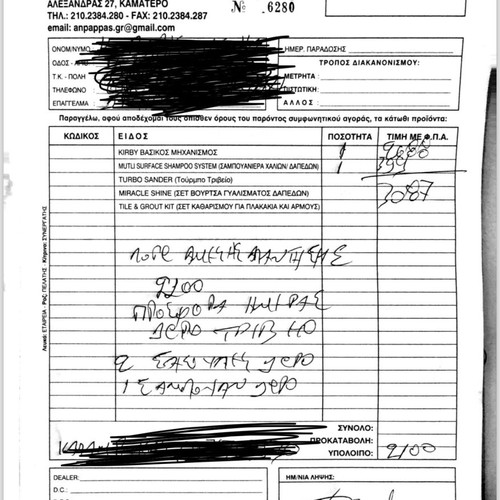 ΑΛΕΞΑΝΔΡΑΣ 27, ΚΑΜΑΤΕΡΟ
ΤΗΛ: 210.2384.280 - FAX: 210.2384.287
email: anpappas.gr@gmail.com
№ 6280
ΟΝΟΜ/ΝΥΜΟ
ΗΜΕΡ. ΠΑΡΑΔΟΣΗΣ:
ΟΔΟΣ - ΑΡ
Τ.Κ. - ΠΟΛΗ
ΤΗΛΕΦΩΝΟ
ΕΠΑΓΓΕΛΜΑ
ΤΡΟΠΟΣ ΔΙΑΚΑΝΟΝΙΣΜΟΥ:
ΜΕΤΡΗΤΑ
ΠΙΣΤΩΤΙΚΗ:
ΑΛΛΟΣ :
Παραγγέλω, αφού αποδέχομαι τους όπισθεν όρους του παρόντος συμφωνητικού αγοράς, τα κάτωθι προϊόντα:
ΚΩΔΙΚΟΣ ΕΙΔΟΣ ΠΟΣΟΤΗΤΑ ΤΙΜΗ ΜΕ Φ.Π.Α.
KIRBY ΒΑΣΙΚΟΣ ΜΗΧΑΝΙΣΜΟΣ 1
MUTLI SURFACE SHAMPOO SYSTEM (ΣΑΜΠΟΥΑΝΙΕΡΑ ΧΑΛΙΩΝ/ ΔΑΠΕΔΩΝ) 1 399
TURBO SANDER (Τούρμπο Τριβείο)
MIRACLE SHINE (ΣΕΤ ΒΟΥΡΤΣΑ ΓΥΑΛΙΣΜΑΤΟΣ ΔΑΠΕΔΩΝ) 3087
TILE & GROUT KIT (ΣΕΤ ΚΑΘΑΡΙΣΜΟΥ ΓΙΑ ΠΛΑΚΑΚΙΑ ΚΑΙ ΑΡΜΟΥΣ)
ΛΟΓΩ ΑΜΕΣΗΣ ΑΠΑΝΤΗΣΗΣ
2200
ΠΡΟΣΦΟΡΑ ΗΜΕΡΑΣ
ΔΕΡΟ ΤΡΙΒΗΟ
2 ΔΕΡΟ
1 ΣΑΜΠΟΥΑΝ ΔΕΡΟ
ΣΥΝΟΛΟ:
ΠΡΟΚΑΤΑΒΟΛΗ:
ΥΠΟΛΟΙΠΟ: 2100
Λευκό: ΕΤΑΙΡΕΙΑ - Ροζ: ΠΕΛΑΤΗΣ - Κίτρινο: ΣΥΝΕΡΓΑΤΗΣ
DEALER:
D.C.:
ΗΜ/ΝΙΑ ΛΗΨΗΣ: